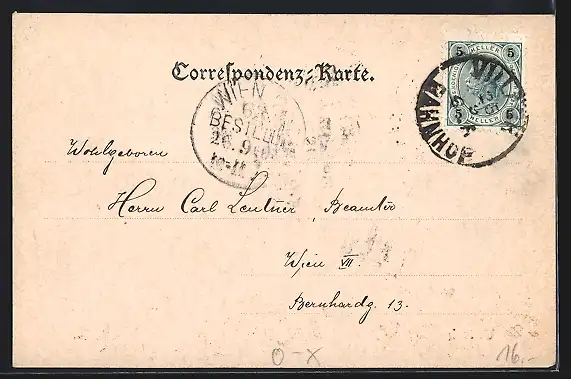 5 HELLER 5
5 HELLER 5
VILL
BAHNHOF
Correspondenz-Karte.
WIEN
BESTELLT
26.9
Wohlgeboren
Herrn Carl Lentner, Beamter
Wien VII.
Bernhardg. 13.
O-X
16.-